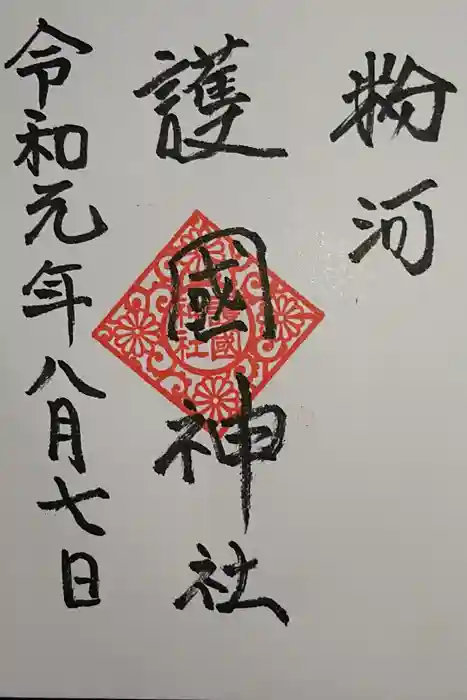 粉河
護國神社
令和元年八月七日
護國
神社